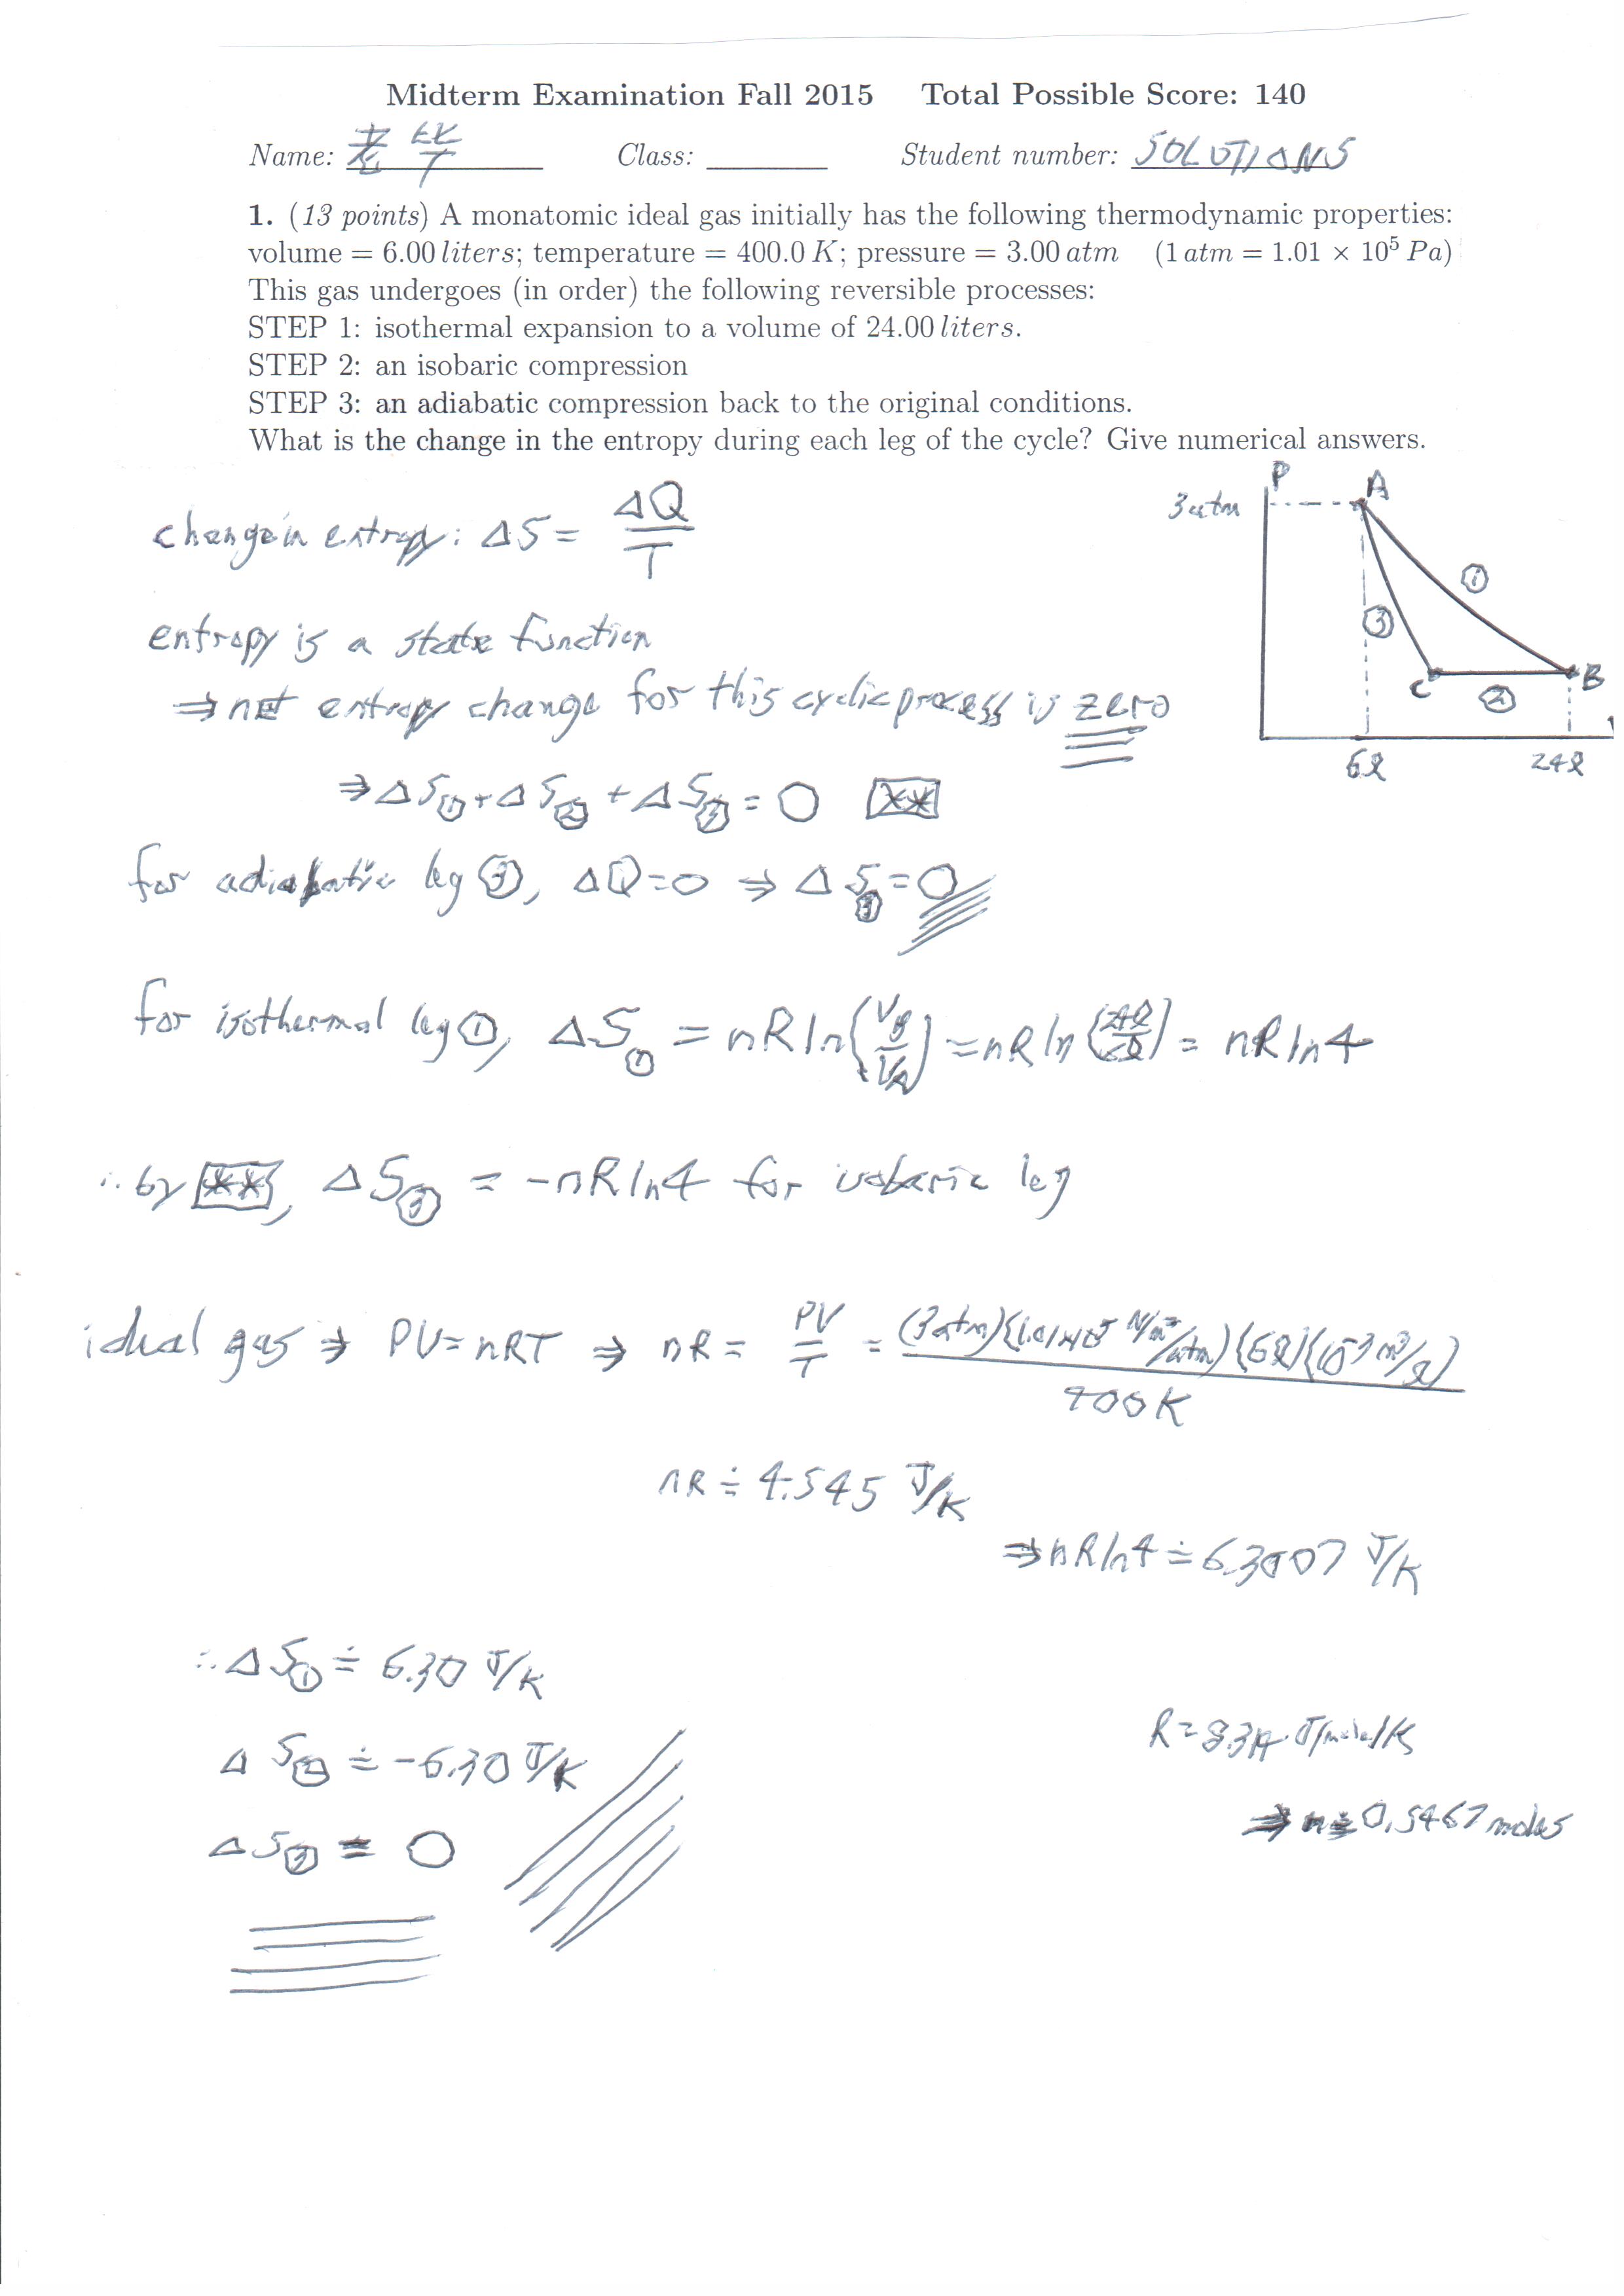 Midterm Examination Fall 2015 Total Possible Score: 140
Name: Class: Student number: SOLUTIONS
1. (13 points) A monatomic ideal gas initially has the following thermodynamic properties:
volume = 6.00 liters; temperature = 400.0 K; pressure = 3.00 atm (1 atm = 1.01 × 10⁵ Pa)
This gas undergoes (in order) the following reversible processes:
STEP 1: isothermal expansion to a volume of 24.00 liters.
STEP 2: an isobaric compression
STEP 3: an adiabatic compression back to the original conditions.
What is the change in the entropy during each leg of the cycle? Give numerical answers.
P
3 atm A
①
③
C ② B
6ℓ 24ℓ
change in entropy: ΔS = ΔQ/T
entropy is a state function
⇒ net entropy change for this cyclic process is zero
⇒ ΔS① + ΔS② + ΔS③ = 0 **
for adiabatic leg ③, ΔQ=0 ⇒ ΔS③ = 0
for isothermal leg ①, ΔS① = nR ln(V_B/V_A) = nR ln(24ℓ/6ℓ) = nR ln 4
∴ by **, ΔS = -nR ln 4 for isobaric leg
ideal gas ⇒ PV = nRT ⇒ nR = PV/T = (3 atm)(1.01×10⁵ N/m²/atm)(6ℓ)(10⁻³ m³/ℓ)/400K
nR ≐ 4.545 J/K
⇒ nR ln 4 ≐ 6.3007 J/K
∴ ΔS① ≐ 6.30 J/K
ΔS② ≐ -6.30 J/K
ΔS③ = 0
R = 8.314 J/mole/K
⇒ n ≐ 0.5467 moles